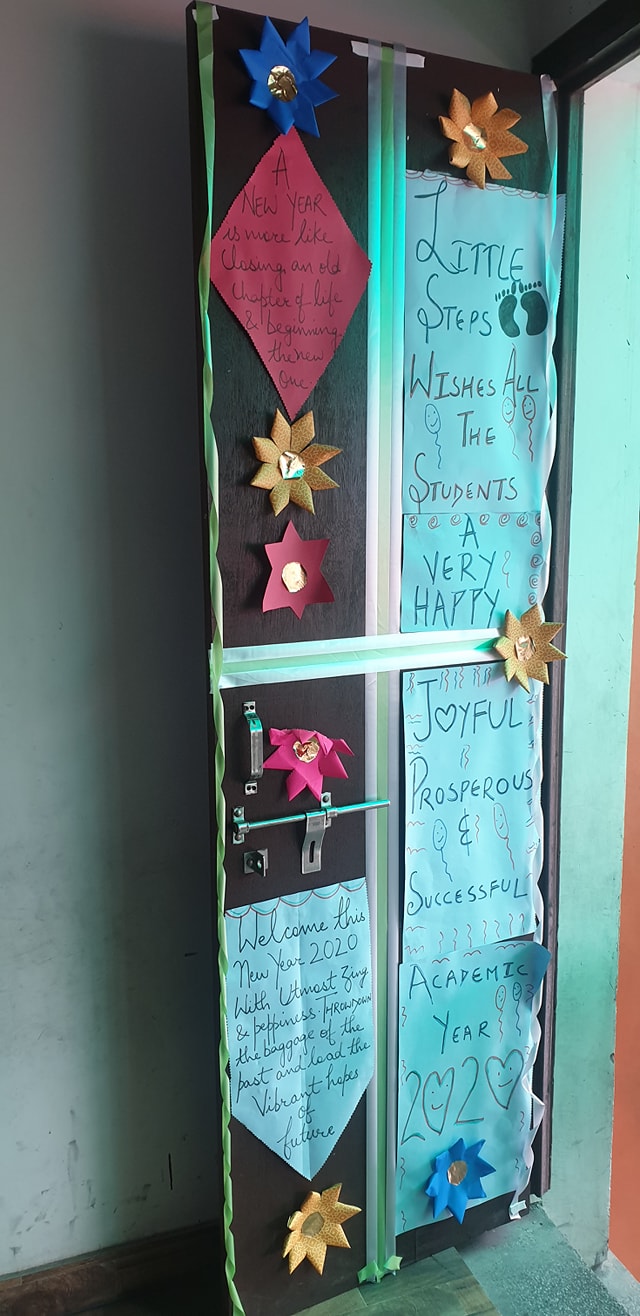 A
NEW YEAR
is more like
Closing an old
Chapter of life
& beginning
the new
One.
LITTLE
STEPS
WISHES ALL
THE
STUDENTS
A
VERY
HAPPY
JOYFUL
PROSPEROUS
&
SUCCESSFUL
ACADEMIC
YEAR
2020
Welcome this
New Year 2020
With Utmost Zing
& peppiness. THROWDOWN
the baggage of the
past and load the
Vibrant hopes
of
future